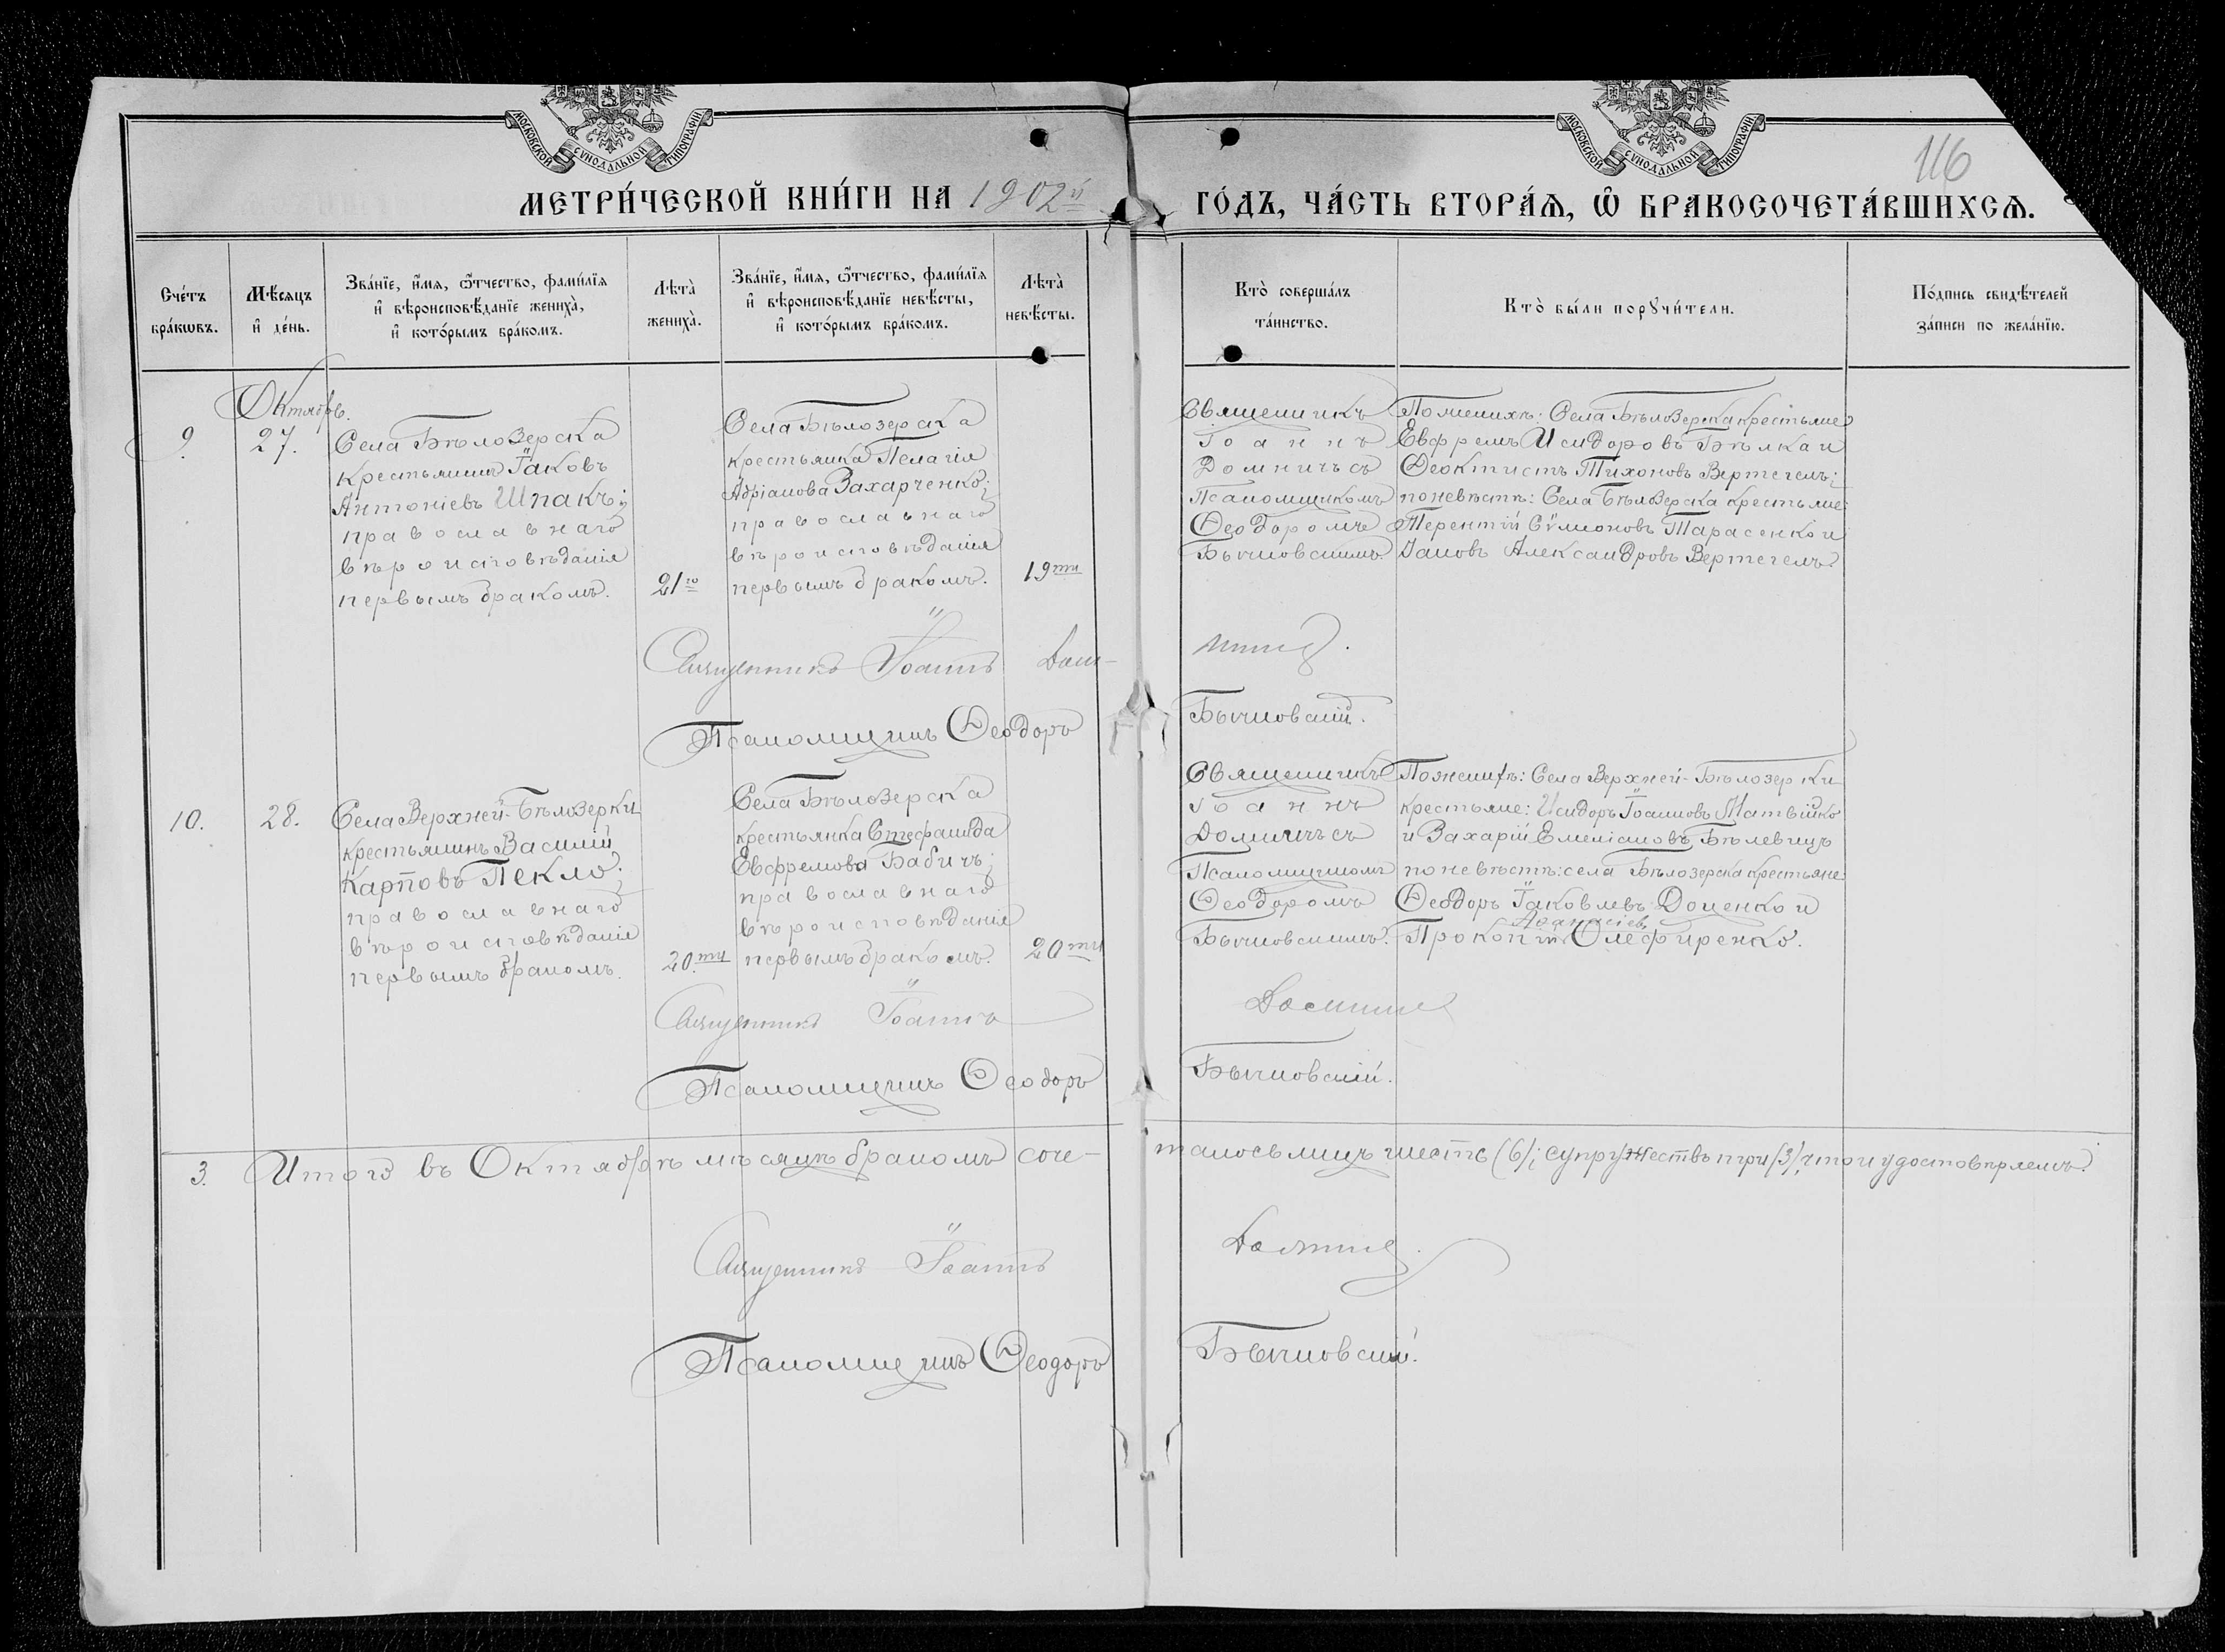 МОСКОВСКОЙ СѴНОДАЛЬНОЙ ТИПОГРАФІИ
МОСКОВСКОЙ СѴНОДАЛЬНОЙ ТИПОГРАФІИ
116
МЕТРИ́ЧЕСКОЙ КНИ́ГИ НА 1902й
ГО́ДЪ, ЧА́СТЬ ВТОРА́Ѧ, Ѽ БРАКОСОЧЕТА́ВШИХСѦ.
Сче́тъ
бра́кѡвъ.
Мѣ́сяцъ
и҆ де́нь.
Зва́нїе, и҆́мѧ, ѻ҆́тчество, фами́лїѧ
и҆ вѣроисповѣ́данїе жениха̀,
и҆ кото́рымъ бра́комъ.
Лѣта̀
жениха̀.
Зва́нїе, и҆́мѧ, ѻ҆́тчество, фами́лїѧ
и҆ вѣроисповѣ́данїе невѣ́сты,
и҆ кото́рымъ бра́комъ.
Лѣта̀
невѣ́сты.
Кто̀ соверша́лъ
та́инство.
Кто̀ бы́ли порꙋчи́тели.
По́дпись свидѣ́телей
за́писи по жела́нїю.
Октябрь.
9.
27.
Села Бѣлозерска
крестьянинъ Іаковъ
Антоніевъ Шпакъ;
православнаго
вѣроисповѣданія
первымъ бракомъ.
21го
Села Бѣлозерска
крестьянка Пелагія
Адріанова Захарченко;
православнаго
вѣроисповѣданія
первымъ бракомъ.
19ти
Священникъ
Іоаннъ
Домничъ съ
Псаломщикомъ
Ѳеодоромъ
Бычковскимъ.
По женихѣ: Села Бѣлозерска крестьяне
Евфремъ Исидоровъ Бѣлка и
Ѳеоктистъ Тихоновъ Вертегелъ;
по невѣстѣ: Села Бѣлозерска крестьяне:
Терентій Сѵмионовъ Тарасенко и
Іаковъ Александровъ Вертегелъ.
Священникъ Іоаннъ Дом-
ничъ.
Псаломщикъ Ѳеодоръ
Бычковскій.
10.
28.
Села Верхней-Бѣлозерки
крестьянинъ Василій
Карповъ Пекло;
православнаго
вѣроисповѣданія
первымъ бракомъ.
20.ти
Села Бѣлозерска
крестьянка Стефанида
Евфремова Бабичъ;
православнаго
вѣроисповѣданія
первымъ бракомъ.
20ти
Священникъ
Іоаннъ
Домничъ съ
Псаломщикомъ
Ѳеодоромъ
Бычковскимъ.
По женихѣ: Села Верхней-Бѣлозерки
крестьяне: Исидоръ Іоанновъ Матвійко
и Захарій Емеліановъ Бѣлевицъ
по невѣстѣ: села Бѣлозерска крестьяне
Ѳеодоръ Іаковлевъ Доценко и
Аѳанасіев
Прокопій Олефиренко.
Священникъ Іоаннъ
Домничъ
Псаломщикъ Ѳеодоръ
Бычковскій.
3.
Итого въ Октябрѣ мѣсяцѣ бракомъ соче-
талось лицъ шесть (6); супружествъ три (3), что и удостовѣряемъ.
Священникъ Іоаннъ
Домничъ.
Псаломщикъ Ѳеодоръ
Бычковскій.